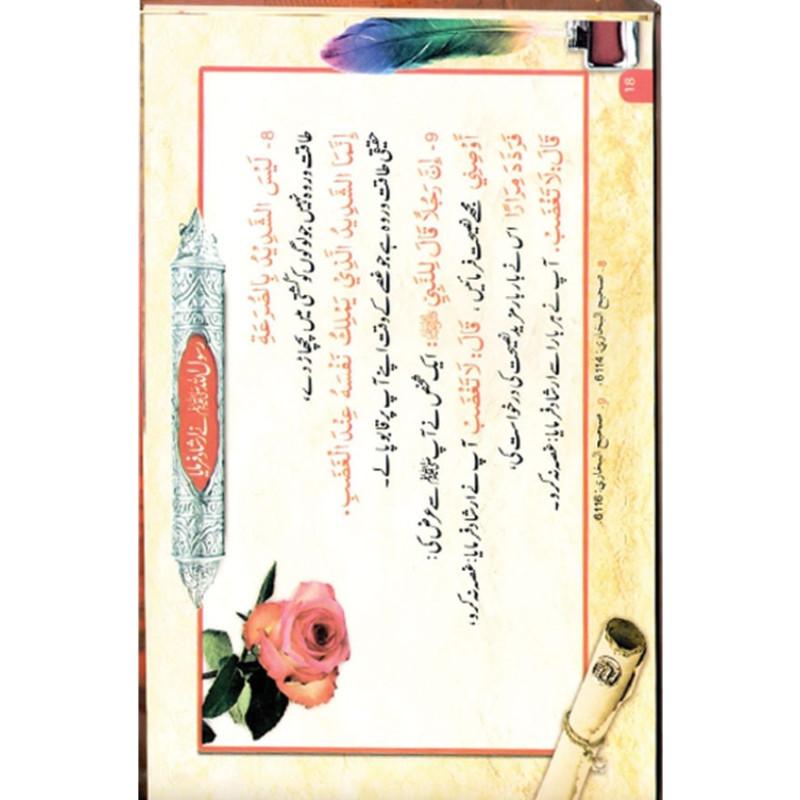 رسول اللہ ﷺ نے ارشاد فرمایا
8- لَيْسَ الشَّدِيْدُ بِالصُّرَعَةِ
طاقت ور وہ نہیں جو لوگوں کو کشتی میں پچھاڑ دے،
إِنَّمَا الشَّدِيْدُ الَّذِيْ يَمْلِكُ نَفْسَهُ عِنْدَ الْغَضَبِ.
حقیقی طاقت ور وہ ہے جو غصے کے وقت اپنے آپ پر قابو پا لے۔
9- إِنَّ رَجُلًا قَالَ لِلنَّبِيِّ ﷺ: ایک شخص نے آپ ﷺ سے عرض کی:
أَوْصِنِيْ مجھے نصیحت فرمائیں، قَالَ: لَا تَغْضَبْ آپ نے ارشاد فرمایا: غصہ نہ کرو،
فَرَدَّدَ مِرَارًا اس نے بار بار مزید نصیحت کی درخواست کی،
قَالَ: لَا تَغْضَبْ. آپ نے ہر بار اسے ارشاد فرمایا: غصہ نہ کرو۔
8- صحیح البخاری: 6114، 9۔ صحیح البخاری: 6116،
18